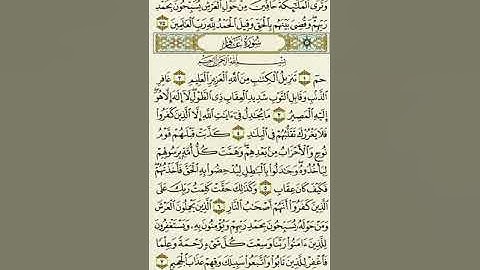 وَتَرَى الْمَلَائِكَةَ حَافِّينَ مِنْ حَوْلِ الْعَرْشِ يُسَبِّحُونَ بِحَمْدِ
رَبِّهِمْ وَقُضِيَ بَيْنَهُم بِالْحَقِّ وَقِيلَ الْحَمْدُ لِلَّهِ رَبِّ الْعَالَمِينَ ٧٥
سُورَةُ غَافِر
بِسْمِ اللَّهِ الرَّحْمَٰنِ الرَّحِيمِ
حم ١ تَنزِيلُ الْكِتَابِ مِنَ اللَّهِ الْعَزِيزِ الْعَلِيمِ ٢ غَافِرِ
الذَّنبِ وَقَابِلِ التَّوْبِ شَدِيدِ الْعِقَابِ ذِي الطَّوْلِ لَا إِلَٰهَ إِلَّا هُوَ
إِلَيْهِ الْمَصِيرُ ٣ مَا يُجَادِلُ فِي آيَاتِ اللَّهِ إِلَّا الَّذِينَ كَفَرُوا
فَلَا يَغْرُرْكَ تَقَلُّبُهُمْ فِي الْبِلَادِ ٤ كَذَّبَتْ قَبْلَهُمْ قَوْمُ
نُوحٍ وَالْأَحْزَابُ مِن بَعْدِهِمْ وَهَمَّتْ كُلُّ أُمَّةٍ بِرَسُولِهِمْ
لِيَأْخُذُوهُ وَجَادَلُوا بِالْبَاطِلِ لِيُدْحِضُوا بِهِ الْحَقَّ فَأَخَذْتُهُمْ
فَكَيْفَ كَانَ عِقَابِ ٥ وَكَذَٰلِكَ حَقَّتْ كَلِمَتُ رَبِّكَ عَلَى
الَّذِينَ كَفَرُوا أَنَّهُمْ أَصْحَابُ النَّارِ ٦ الَّذِينَ يَحْمِلُونَ الْعَرْشَ
وَمَنْ حَوْلَهُ يُسَبِّحُونَ بِحَمْدِ رَبِّهِمْ وَيُؤْمِنُونَ بِهِ وَيَسْتَغْفِرُونَ
لِلَّذِينَ آمَنُوا رَبَّنَا وَسِعْتَ كُلَّ شَيْءٍ رَّحْمَةً وَعِلْمًا
فَاغْفِرْ لِلَّذِينَ تَابُوا وَاتَّبَعُوا سَبِيلَكَ وَقِهِمْ عَذَابَ الْجَحِيمِ ٧